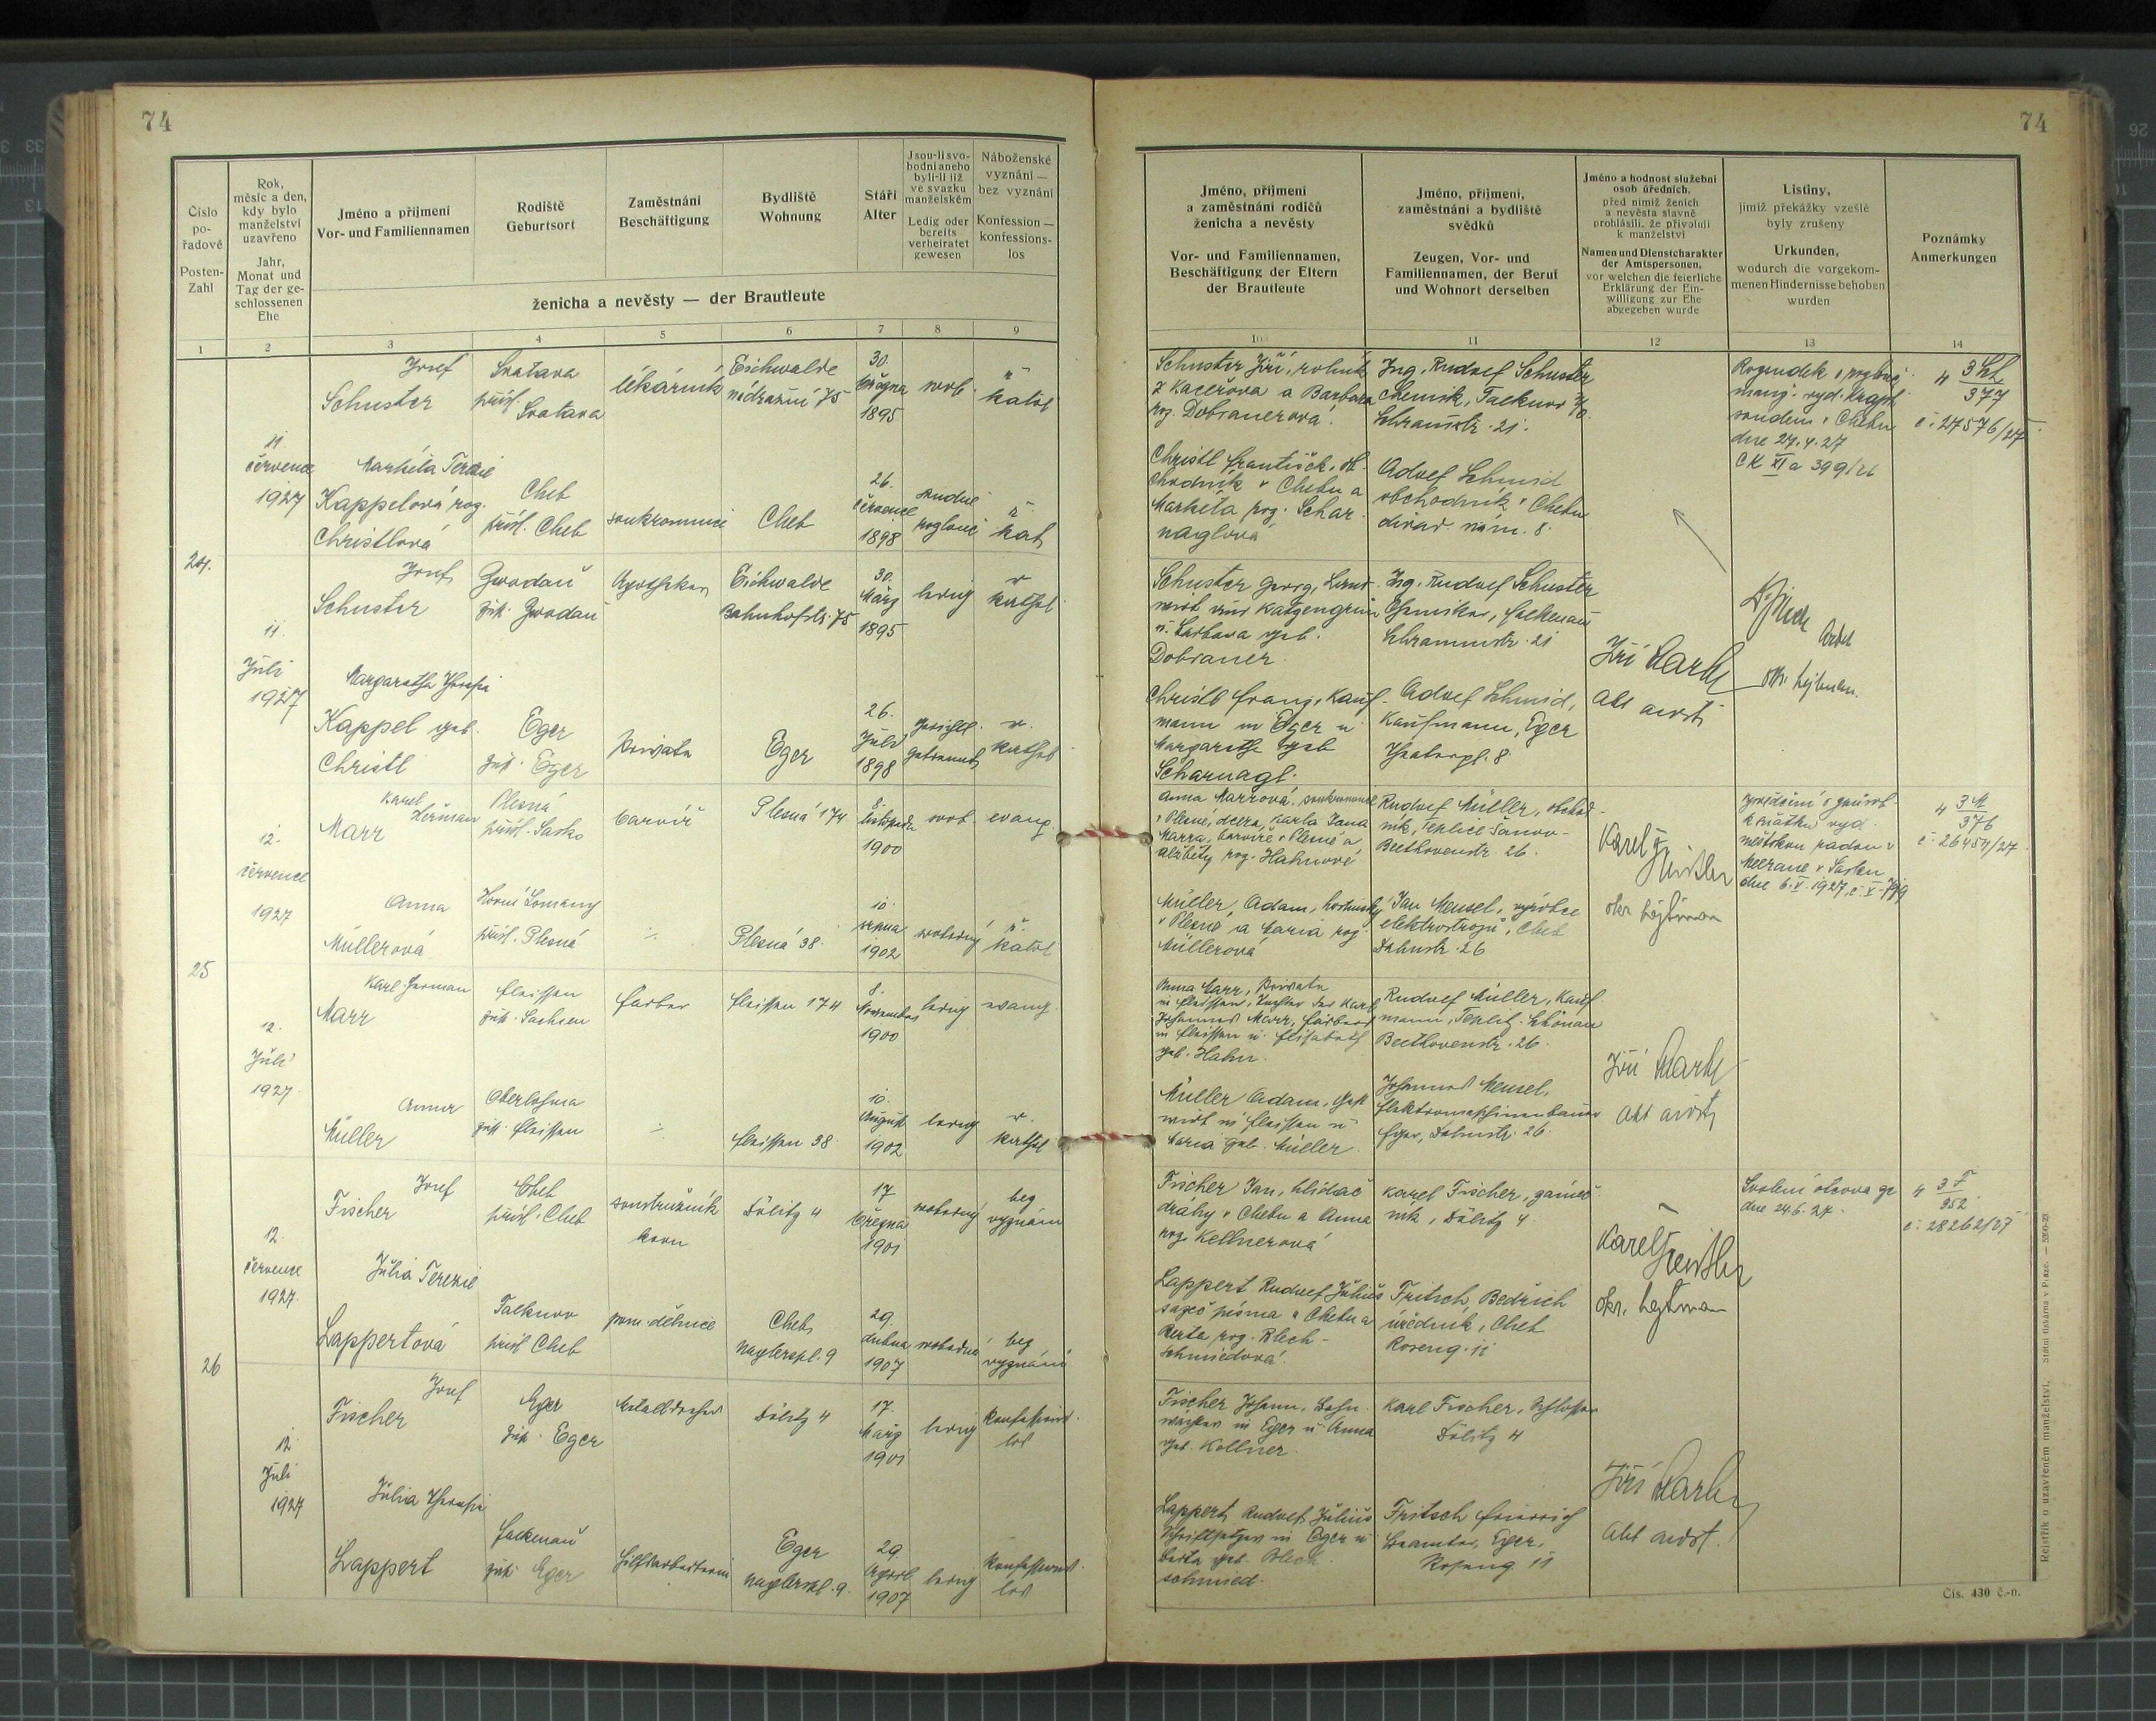 74
74
Číslo pořadové
Posten-Zahl
Rok, měsíc a den, kdy bylo manželství uzavřeno
Jahr, Monat und Tag der geschlossenen Ehe
Jméno a příjmení
Vor- und Familiennamen
Rodiště
Geburtsort
Zaměstnání
Beschäftigung
Bydliště
Wohnung
Stáří
Alter
Jsou-li svobodni anebo byli-li již ve svazku manželském
Ledig oder bereits verheiratet gewesen
Náboženské vyznání — bez vyznání
Konfession — konfessionslos
ženicha a nevěsty — der Brautleute
Jméno, příjmení a zaměstnání rodičů ženicha a nevěsty
Vor- und Familiennamen, Beschäftigung der Eltern der Brautleute
Jméno, příjmení, zaměstnání a bydliště svědků
Zeugen, Vor- und Familiennamen, der Beruf und Wohnort derselben
Jméno a hodnost služební osob úředních, před nimiž ženich a nevěsta slavně prohlásili, že přivolují k manželství
Namen und Dienstcharakter der Amtspersonen, vor welchen die feierliche Erklärung der Einwilligung zur Ehe abgegeben wurde
Listiny, jimiž překážky vzešlé byly zrušeny
Urkunden, wodurch die vorgekommenen Hindernisse behoben wurden
Poznámky
Anmerkungen
1 2 3 4 5 6 7 8 9
10 11 12 13 14
24.
11. července 1927
Josef Schuster
Svatava přísl. Svatava
lékárník
Eichwalde nádražní 75
30. března 1895
svob.
ř. katol
Schuster Jiří, rolník z Kaceřova a Barbara roz. Dobranerová
Ing. Rudolf Schuster chemik, Falknov n/O. Schrammstr. 21.
Rozsudek o rozluce manž. vyd. Krajsk. soudem v Chebu dne 27.4.27 CK XI a 399/26
4 3 Sch 377 č. 27576/27
Markéta Terezie Kappelová roz. Christlová
Cheb přísl. Cheb
soukromnice
Cheb
26. července 1898
soudně rozloučena
ř. kat
Christl František, obchodník v Chebu a Markéta roz. Scharnaglová
Adolf Schmid obchodník v Chebu divad. nám. 8.
11. Juli 1927
Josef Schuster
Zwodau zust. Zwodau
Apotheker
Eichwalde Bahnhofstr. 75
30. März 1895
ledig
r. kathol
Schuster Georg, Landwirt aus Katzengrün u. Barbara geb. Dobraner
Ing. Rudolf Schuster Chemiker, Falkenau Schrammstr. 21
okr. hejtman.
Margaretha Theresia Kappel geb. Christl
Eger zust. Eger
Private
Eger
26. Juli 1898
gerichtl. getrennt
r. kathol
Christl Franz, Kaufmann in Eger u Margarethe geb Scharnagl.
Adolf Schmid, Kaufmann, Eger Theaterpl. 8
25
12. července 1927
Karel Heřman Marr
Plesná přísl. Sasko
barvíř
Plesná 174
8. listopadu 1900
svob.
evang
Anna Marrová, soukromnice v Plesné, dcera Karla Jana Marra, barvíře v Plesné a Alžběty roz. Hahnové
Rudolf Müller, obchodník, Teplice Šanov - Beethovenstr. 26.
Karel
okr. hejtman
vyd. městskou radou v Meerane v Sasku dne 6.V.1927
4 3 M 376 č. 26454/27
Anna Müllerová
Horní Lomany přísl. Plesná
Plesná 38.
10. srpna 1902
svobodná
ř. katol
Müller Adam, hostinský v Plesné a Maria roz. Müllerová
Jan Meusel, výrobce elektrostrojů, Cheb Bahnstr. 26
12. Juli 1927
Karl Herman Marr
Fleissen zust. Sachsen
Färber
Fleissen 174
8. November 1900
ledig
evang.
Anna Marr, Private in Fleissen, Tochter des Karl Johannes Marr, Färbers in Fleissen u. Elisabeth geb. Hahn.
Rudolf Müller, Kaufmann, Teplitz-Schönau Beethovenstr. 26.
Anna Müller
Oberlohma zust. Fleissen
Fleissen 38
10. August 1902
ledig
r. kathol
Müller Adam, Gastwirt in Fleissen u Maria geb. Müller
Johannes Meusel, Elektromaschinenbauer Eger, Bahnstr. 26.
26
12. července 1927
Josef Fischer
Cheb přísl. Cheb
soustružník kovu
Dölitz 4
17 března 1901
svobodný
bez vyznání
Fischer Jan, hlídač dráhy v Chebu a Anna roz. Kellnerová
Karel Fischer, zámečník, Dölitz 4
okr. hejtman
Svolení otcova ze dne 24.6.27
4 3 F 952 č. 28262/27
Júlia Terezie Lappertová
Falknov přísl Cheb
pom. dělnice
Cheb, Naglerspl. 9
29. dubna 1907
svobodná
bez vyznání
Lappert Rudolf Július sazeč písma v Chebu a Berta roz. Blechschmiedová
Fritsch Bedřich úředník, Cheb Roseng. 11
12 Juli 1927
Josef Fischer
Eger zust. Eger
Metalldreher
Dölitz 4
17. März 1901
ledig
konfessionslos
Fischer Johann, Bahnwächter in Eger u Anna geb. Kellner.
Karl Fischer, Schlosser Dölitz 4
Júlia Theresia Lappert
Falkenau zust Eger
Hilfsarbeiterin
Eger Naglerspl. 9.
29. April 1907
ledig
konfessionslos
Lappert Rudolf Július Schriftsetzer in Eger u Berta geb. Blechschmied.
Fritsch Friedrich Beamter, Eger, Roseng. 11
Čís. 430 č.-n.